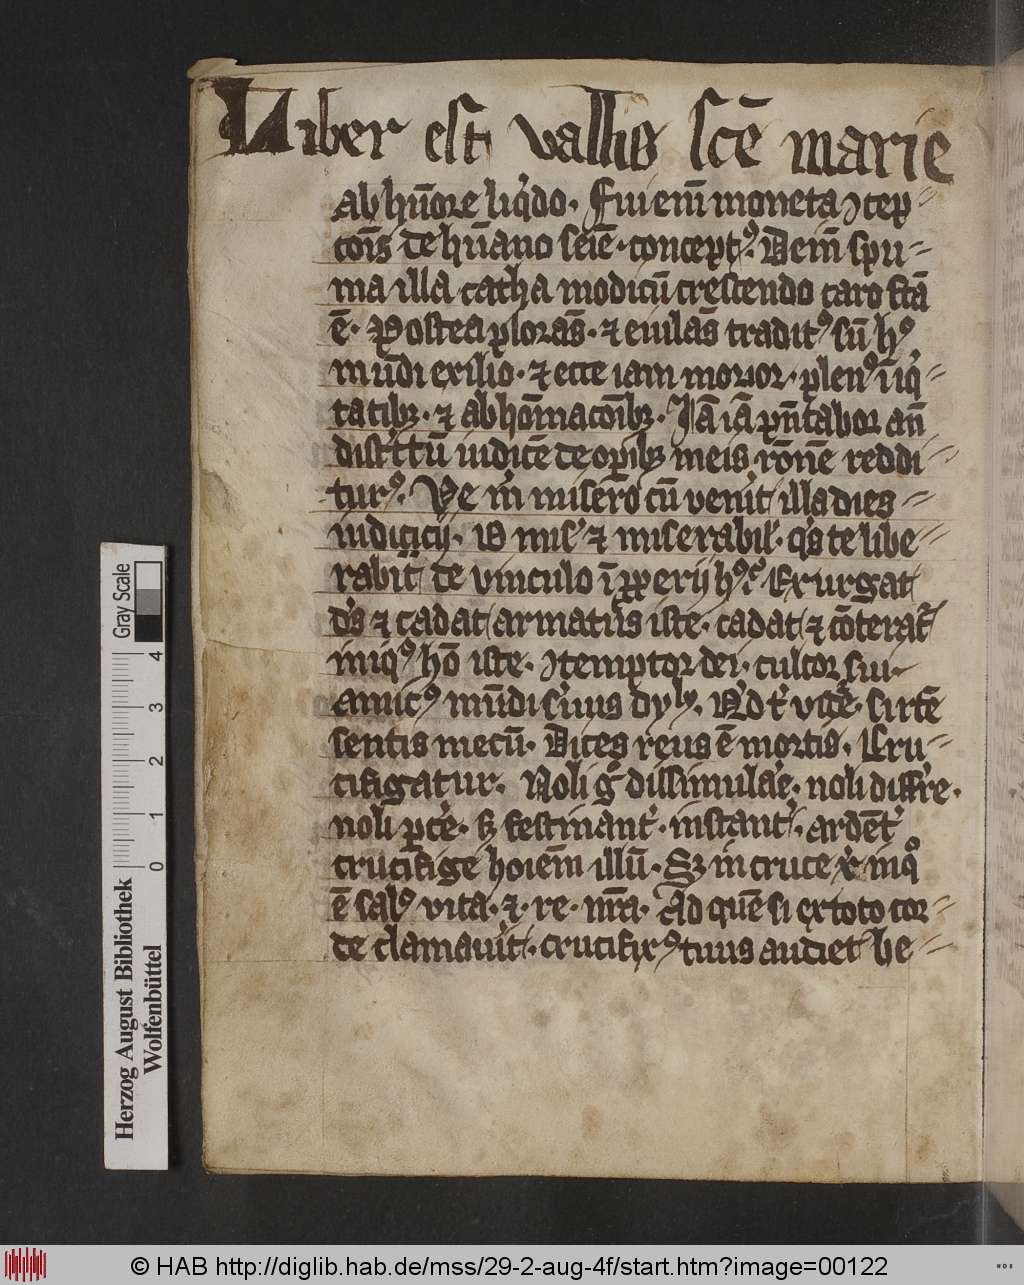 Liber est vallis scē marie
ab hūore liq̇do. Fui enī moneta ⁊ cep
cōīs de hūano seīe. concept⁹. Dein̄ spu
ma illa catha modicū crescendo caro fcā
ē. Postea ploras̄. ⁊ eiulās tradit⁹ sū h⁹
mūdi exilio. ⁊ ecce iam morior. plen⁹ īiq̇
tatibꝫ. ⁊ abhomīacōībꝫ. Iā iā pn̄tabor an̄
districtū iudicē de opibꝫ meis rōnē reddi
tur⁹. Ve m̄ misero cū veneī̄t illa dies
iudicij. O mis̄ ⁊ miserabil̄. q̇s te libe
rabit de vinculo Exurgat
ds̄ ⁊ cadat armatus iste. cadat ⁊ cōterat̄
iniq⁹ hō iste. ⁊temptor dei. cultor sui
amic⁹ mūdi s̄uus dy
sentis mecū. Dices reus ē mortis. Cru
cifigatur. Noli g̊ dissimulāe. noli diffr̄e.
noli pc̄e. sꝫ festinant̄. instant̄. ardēt̄
crucifige hoiem̄ illū. Sꝫ in cruce x̄ i inq̊
ē sal⁹ vita. ⁊. re. nr̄a. Ad quē si ex toto cor
de clamauīt. crucifix⁹ tuus audiet be
Herzog August Bibliothek
Wolfenbüttel
0 1 2 3 4
Gray Scale
© HAB http://diglib.hab.de/mss/29-2-aug-4f/start.htm?image=00122